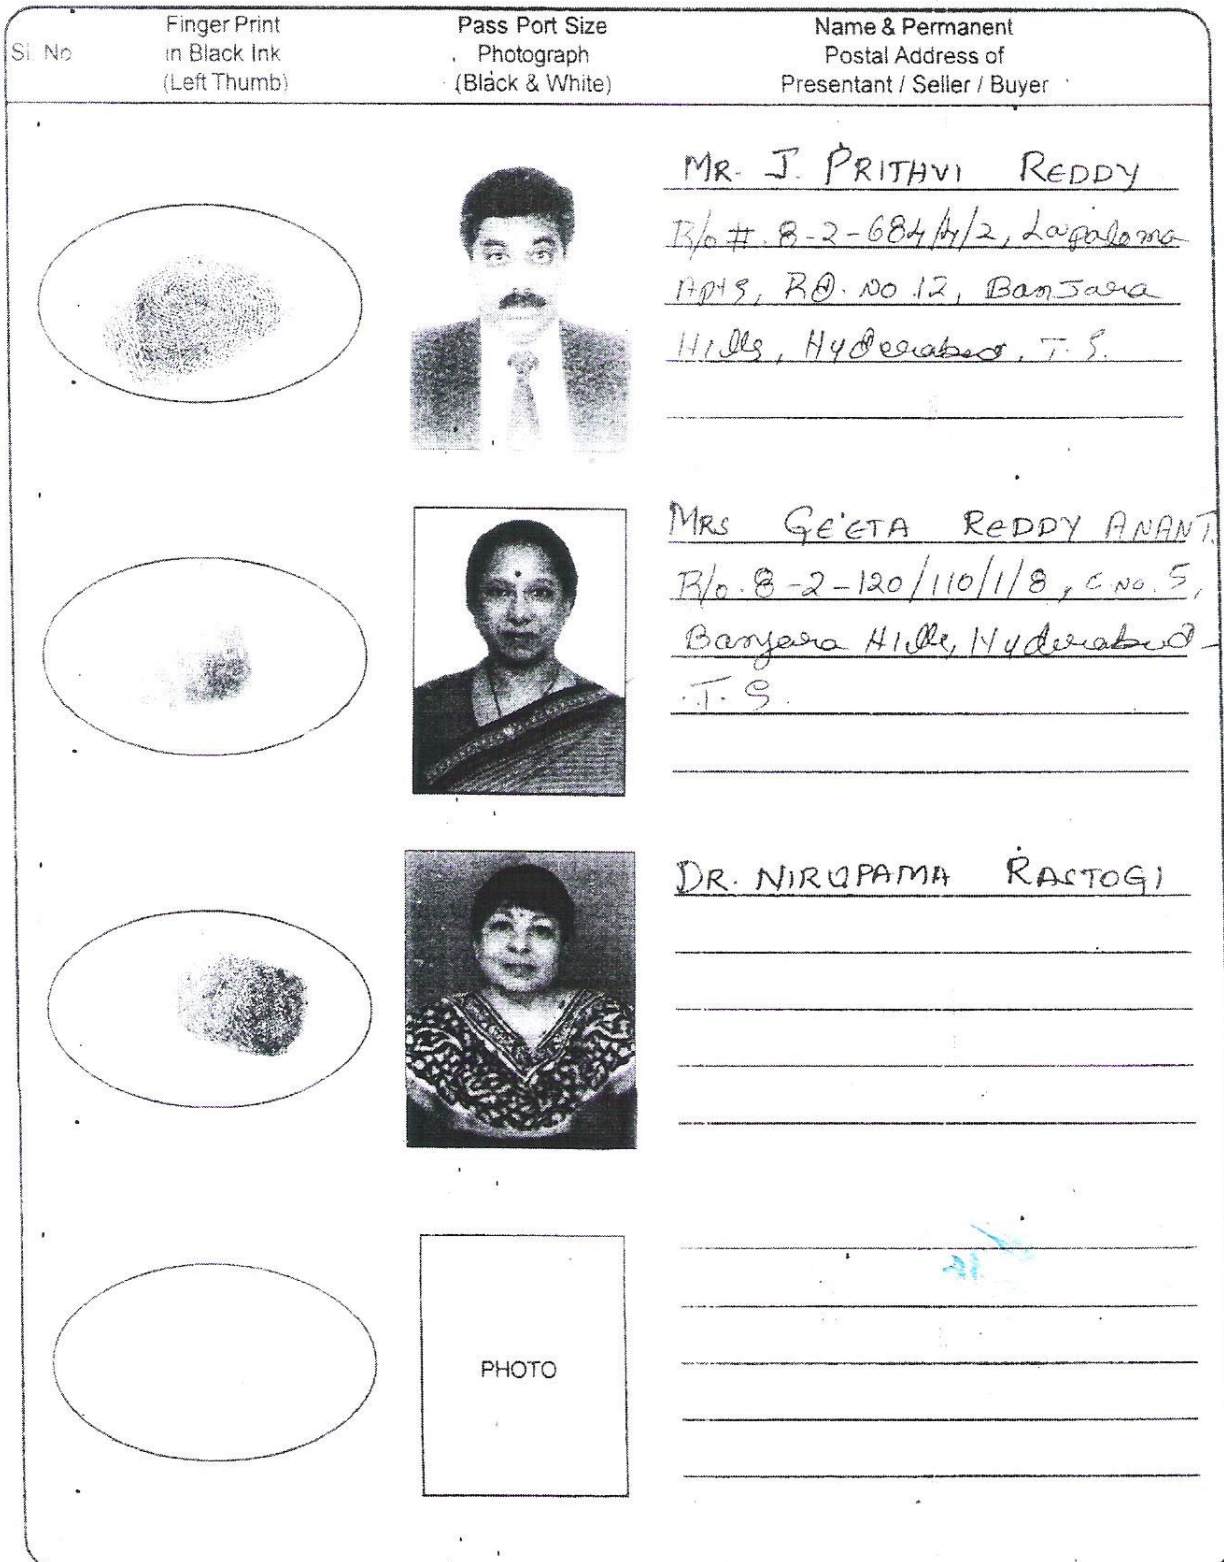 Sl. No
Finger Print
in Black Ink
(Left Thumb)
Pass Port Size
Photograph
(Black & White)
Name & Permanent
Postal Address of
Presentant / Seller / Buyer
MR. J. PRITHVI REDDY
R/o #. 8-2-684/4/2, Lapaloma
Apts, RD. No 12, Banjara
Hills, Hyderabad. T.S.
MRS GEETA REDDY ANANT
R/o. 8-2-120/110/1/8, C. No. 5,
Banjara Hills, Hyderabad -
T.S.
DR. NIRUPAMA RASTOGI
PHOTO